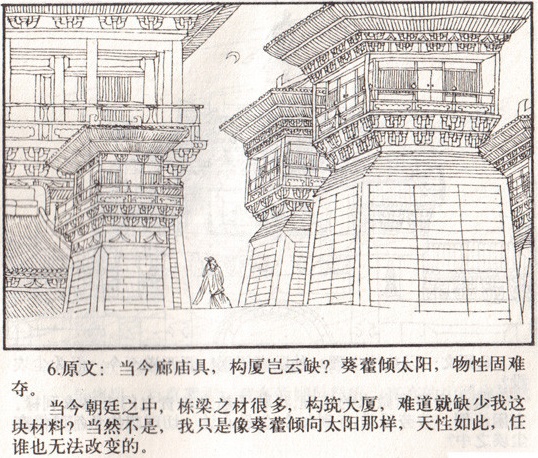 6.原文：当今廊庙具，构厦岂云缺？葵藿倾太阳，物性固难
夺。
当今朝廷之中，栋梁之材很多，构筑大厦，难道就缺少我这
块材料？当然不是，我只是像葵藿倾向太阳那样，天性如此，任
谁也无法改变的。